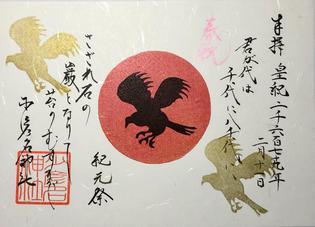 奉拝 皇紀二千六百七十九年
二月十一日
奉祝
君が代は
千代に八千代に
紀元祭
さざれ石の
巌となりて
苔のむすまで